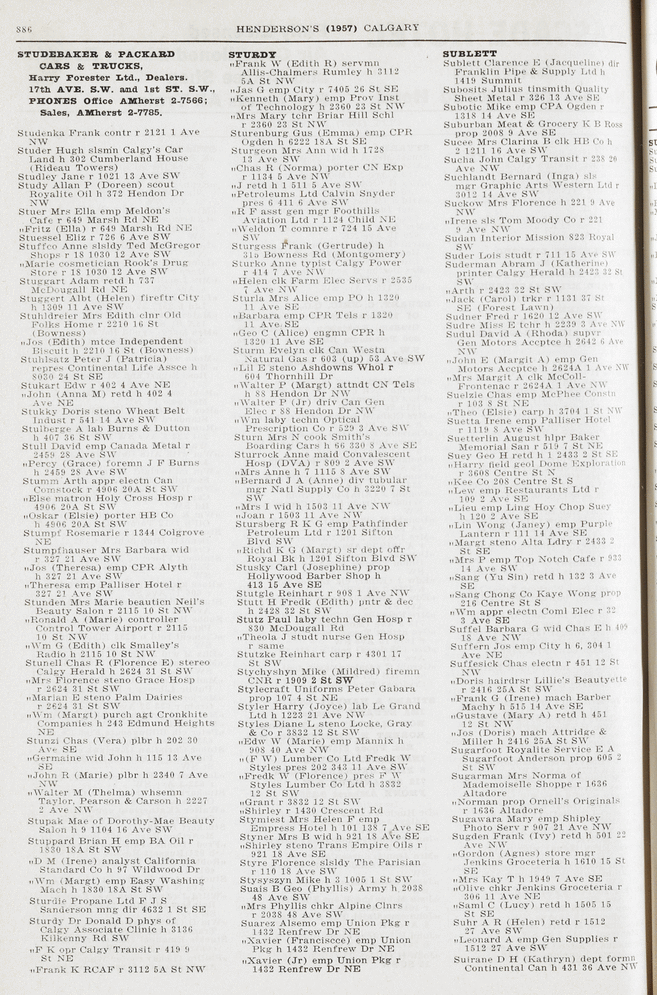 886
HENDERSON'S (1957) CALGARY
STUDEBAKER & PACKARD
CARS & TRUCKS,
Harry Forester Ltd., Dealers.
17th AVE. S.W. and 1st ST. S.W.,
PHONES Office AMherst 2-7566;
Sales, AMherst 2-7785.
Studenka Frank contr r 2121 1 Ave
NW
Studer Hugh slsmn Calgy's Car
Land h 302 Cumberland House
(Rideau Towers)
Studley Jane r 1021 13 Ave SW
Study Allan P (Doreen) scout
Royalite Oil h 372 Hendon Dr
NW
Stuer Mrs Ella emp Meldon's
Cafe r 649 Marsh Rd NE
„Fritz (Ella) r 649 Marsh Rd NE
Stuessel Eliz r 726 6 Ave SW
Stuffco Anne slsldy Ted McGregor
Shops r 18 1030 12 Ave SW
„Marie cosmetician Rook's Drug
Store r 18 1030 12 Ave SW
Stuggart Adam retd h 737
McDougall Rd NE
Stuggert Albt (Helen) fireftr City
h 1309 11 Ave SW
Stuhldreier Mrs Edith clnr Old
Folks Home r 2210 16 St
(Bowness)
„Jos (Edith) mtce Independent
Biscuit h 2210 16 St (Bowness)
Stuhlsatz Peter J (Patricia)
repres Continental Life Assce h
8030 24 St SE
Stukart Edw r 402 4 Ave NE
„John (Anna M) retd h 402 4
Ave NE
Stukky Doris steno Wheat Belt
Indust r 541 14 Ave SW
Stulberge A lab Burns & Dutton
h 407 36 St SW
Stull David emp Canada Metal r
2459 28 Ave SW
„Percy (Grace) foremn J F Burns
h 2459 28 Ave SW
Stumm Arth appr electn Can
Comstock r 4906 20A St SW
„Else matron Holy Cross Hosp r
4906 20A St SW
„Oskar (Elsie) porter HB Co
h 4906 20A St SW
Stumpf Rosemarie r 1344 Colgrove
NE
Stumpfhauser Mrs Barbara wid
r 327 21 Ave SW
„Jos (Theresa) emp CPR Alyth
h 327 21 Ave SW
„Theresa emp Palliser Hotel r
327 21 Ave SW
Stunden Mrs Marie beauticn Neil's
Beauty Salon r 2115 10 St NW
„Ronald A (Marie) controller
Control Tower Airport r 2115
10 St NW
„Wm G (Edith) clk Smalley's
Radio h 2115 10 St NW
Stunell Chas R (Florence E) stereo
Calgy Herald h 2624 31 St SW
„Mrs Florence steno Grace Hosp
r 2624 31 St SW
„Marian E steno Palm Dairies
r 2624 31 St SW
„Wm (Margt) purch agt Cronkhite
Companies h 243 Edmund Heights
NE
Stunzi Chas (Vera) plbr h 202 30
Ave SE
„Germaine wid John h 115 13 Ave
SE
„John R (Marie) plbr h 2340 7 Ave
NW
„Walter M (Thelma) whsemn
Taylor, Pearson & Carson h 2227
2 Ave NW
Stupak Mae of Dorothy-Mae Beauty
Salon h 9 1104 16 Ave SW
Stuppard Brian H emp BA Oil r
1830 18A St SW
„D M (Irene) analyst California
Standard Co h 97 Wildwood Dr
„Wm (Margt) emp Easy Washing
Mach h 1830 18A St SW
Sturdie Propane Ltd F J S
Sanderson mng dir 4632 1 St SE
Sturdy Dr Donald D phys of
Calgy Associate Clinic h 3136
Kilkenny Rd SW
„F K opr Calgy Transit r 419 9
St NE
„Frank K RCAF r 3112 5A St NW
STURDY
„Frank W (Edith R) servmn
Allis-Chalmers Rumley h 3112
5A St NW
„Jas G emp City r 7405 26 St SE
„Kenneth (Mary) emp Prov Inst
of Technology h 2360 23 St NW
„Mrs Mary tchr Briar Hill Schl
r 2360 23 St NW
Sturenburg Gus (Emma) emp CPR
Ogden h 6222 18A St SE
Sturgeon Mrs Ann wid h 1728
13 Ave SW
„Chas R (Norma) porter CN Exp
r 1134 5 Ave NW
„J retd h 1 511 5 Ave SW
„Petroleums Ltd Calvin Snyder
pres 6 411 6 Ave SW
„R F asst gen mgr Foothills
Aviation Ltd r 1124 Child NE
„Weldon T comnre r 724 15 Ave
SW
Sturgess Frank (Gertrude) h
315 Bowness Rd (Montgomery)
Sturko Anne typist Calgy Power
r 414 7 Ave NW
„Helen clk Farm Elec Servs r 2535
7 Ave NW
Sturla Mrs Alice emp PO h 1320
11 Ave SE
„Barbara emp CPR Tels r 1320
11 Ave SE
„Geo C (Alice) engmn CPR h
1320 11 Ave SE
Sturm Evelyn clk Can Westn
Natural Gas r 603 (up) 53 Ave SW
„Lil E steno Ashdowns Whol r
604 Thornhill Dr
„Walter P (Margt) attndt CN Tels
h 88 Hendon Dr NW
„Walter P (Jr) driv Can Gen
Elec r 88 Hendon Dr NW
„Wm laby techn Optical
Prescription Co r 529 3 Ave SW
Sturn Mrs N cook Smith's
Boarding Cars h 66 330 8 Ave SE
Sturrock Anne maid Convalescent
Hosp (DVA) r 809 2 Ave SW
„Mrs Anne h 7 1115 8 Ave SW
„Bernard J A (Anne) div tabular
mgr Natl Supply Co h 3220 7 St
SW
„Mrs I wid h 1503 11 Ave NW
„Joan r 1503 11 Ave NW
Stursberg R K G emp Pathfinder
Petroleum Ltd r 1201 Sifton
Blvd SW
„Richd K G (Margt) sr dept offr
Royal Bk h 1201 Sifton Blvd SW
Stusky Carl (Josephine) prop
Hollywood Barber Shop h
413 15 Ave SE
Stutgle Reinhart r 908 1 Ave NW
Stutt H Fredk (Edith) pntr & dec
h 2428 32 St SW
Stutz Paul laby techn Gen Hosp r
830 McDougall Rd
„Theola J studt nurse Gen Hosp
r same
Stutzke Reinhart carp r 4301 17
St SW
Stychyshyn Mike (Mildred) firemn
CNR r 1909 2 St SW
Stylecraft Uniforms Peter Gabara
prop 107 4 St NE
Styler Harry (Joyce) lab Le Grand
Ltd h 1223 21 Ave NW
Styles Diane L steno Locke, Gray
& Co r 3832 12 St SW
„Edw W (Marie) emp Mannix h
908 40 Ave NW
„(F W) Lumber Co Ltd Fredk W
Styles pres 202 343 11 Ave SW
„Fredk W (Florence) pres F W
Styles Lumber Co Ltd h 3832
12 St SW
„Grant r 3832 12 St SW
„Shirley r 1430 Crescent Rd
Stymiest Mrs Helen F emp
Empress Hotel h 101 138 7 Ave SE
Styner Mrs B wid h 921 18 Ave SE
„Shirley steno Trans Empire Oils r
921 18 Ave SE
Styre Florence slsldy The Parisian
r 110 18 Ave SW
Stysyszyn Mike h 3 1005 1 St SW
Suais B Geo (Phyllis) Army h 2038
48 Ave SW
„Mrs Phyllis chkr Alpine Clnrs
r 2038 48 Ave SW
Suarez Alsemo emp Union Pkg r
1432 Renfrew Dr NE
„Xavier (Franciscce) emp Union
Pkg h 1432 Renfrew Dr NE
„Xavier (Jr) emp Union Pkg r
1432 Renfrew Dr NE
SUBLETT
Sublett Clarence E (Jacqueline) dir
Franklin Pipe & Supply Ltd h
1419 Summit
Subosits Julius tinsmith Quality
Sheet Metal r 326 13 Ave SE
Subotic Mike emp CPA Ogden r
1318 14 Ave SE
Suburban Meat & Grocery K B Ross
prop 2008 9 Ave SE
Sucee Mrs Clarina B clk HB Co h
2 1211 16 Ave SW
Sucha John Calgy Transit r 238 20
Ave NW
Suchlandt Bernard (Inga) sls
mgr Graphic Arts Western Ltd r
3012 14 Ave SW
Suckow Mrs Florence h 221 9 Ave
NW
„Irene sls Tom Moody Co r 221
9 Ave NW
Sudan Interior Mission 823 Royal
SW
Suder Lois studt r 711 15 Ave SW
Suderman Abram J (Katherine)
printer Calgy Herald h 2423 32 St
SW
„Arth r 2423 32 St SW
„Jack (Carol) trkr r 1131 37 St
SE (Forest Lawn)
Sudner Fred r 1620 12 Ave SW
Sudre Miss E tchr h 2239 3 Ave NW
Sudul David A (Rhoda) supvr
Gen Motors Accptce h 2642 6 Ave
NW
„John E (Margit A) emp Gen
Motors Accptce h 2624A 1 Ave NW
„Mrs Margit A clk McColl-
Frontenac r 2624A 1 Ave NW
Suelzie Chas emp McPhee Constn
r 103 8 St NE
„Theo (Elsie) carp h 3704 1 St NW
Suetta Irene emp Palliser Hotel
r 1119 8 Ave SW
Suetterlin August hlpr Baker
Memorial San r 519 7 St NE
Suey Geo H retd h 1 2433 2 St SE
„Harry field geol Dome Exploration
r 3608 Centre St N
„Kee Co 208 Centre St S
„Lew emp Restaurants Ltd r
109 2 Ave SE
„Lieu emp Ling Hoy Chop Suey
h 120 2 Ave SE
„Lin Wong (Janey) emp Purple
Lantern r 111 14 Ave SE
„Margt steno Alta Ldry r 2433 2
St SE
„Mrs P emp Top Notch Cafe r 933
14 Ave SW
„Sang (Yu Sin) retd h 132 3 Ave
SE
„Sang Chong Co Kaye Wong prop
216 Centre St S
„Wm appr electn Coml Elec r 32
3 Ave SE
Suffel Barbara G wid Chas E h 405
18 Ave NW
Suffern Jos emp City h 6, 304 1
Ave NE
Suffesick Chas electn r 451 12 St
NW
„Doris hairdrsr Lillie's Beautyette
r 2416 25A St SW
„Frank G (Irene) mach Barber
Machy h 515 14 Ave SE
„Gustave (Mary A) retd h 451
12 St NW
„Jos (Doris) mach Attridge &
Miller h 2416 25A St SW
Sugarfoot Royalite Service E A
Sugarfoot Anderson prop 605 2
St SW
Sugarman Mrs Norma of
Mademoiselle Shoppe r 1636
Altadore
„Norman prop Ornell's Originals
r 1636 Altadore
Sugawara Mary emp Shipley
Photo Serv r 907 21 Ave NW
Sugden Frank (Ivy) retd h 501 22
Ave NW
„Gordon (Agnes) store mgr
Jenkins Groceteria h 1610 15 St
SE
„Mrs Kay T h 1949 7 Ave SE
„Olive chkr Jenkins Groceteria r
306 11 Ave NE
„Saml C (Lucy) retd h 1505 15
St SE
Suhr A R (Helen) retd r 1512
27 Ave SW
„Leonard A emp Gen Supplies r
1512 27 Ave SW
Suirane D H (Kathryn) dept formn
Continental Can h 431 36 Ave NW